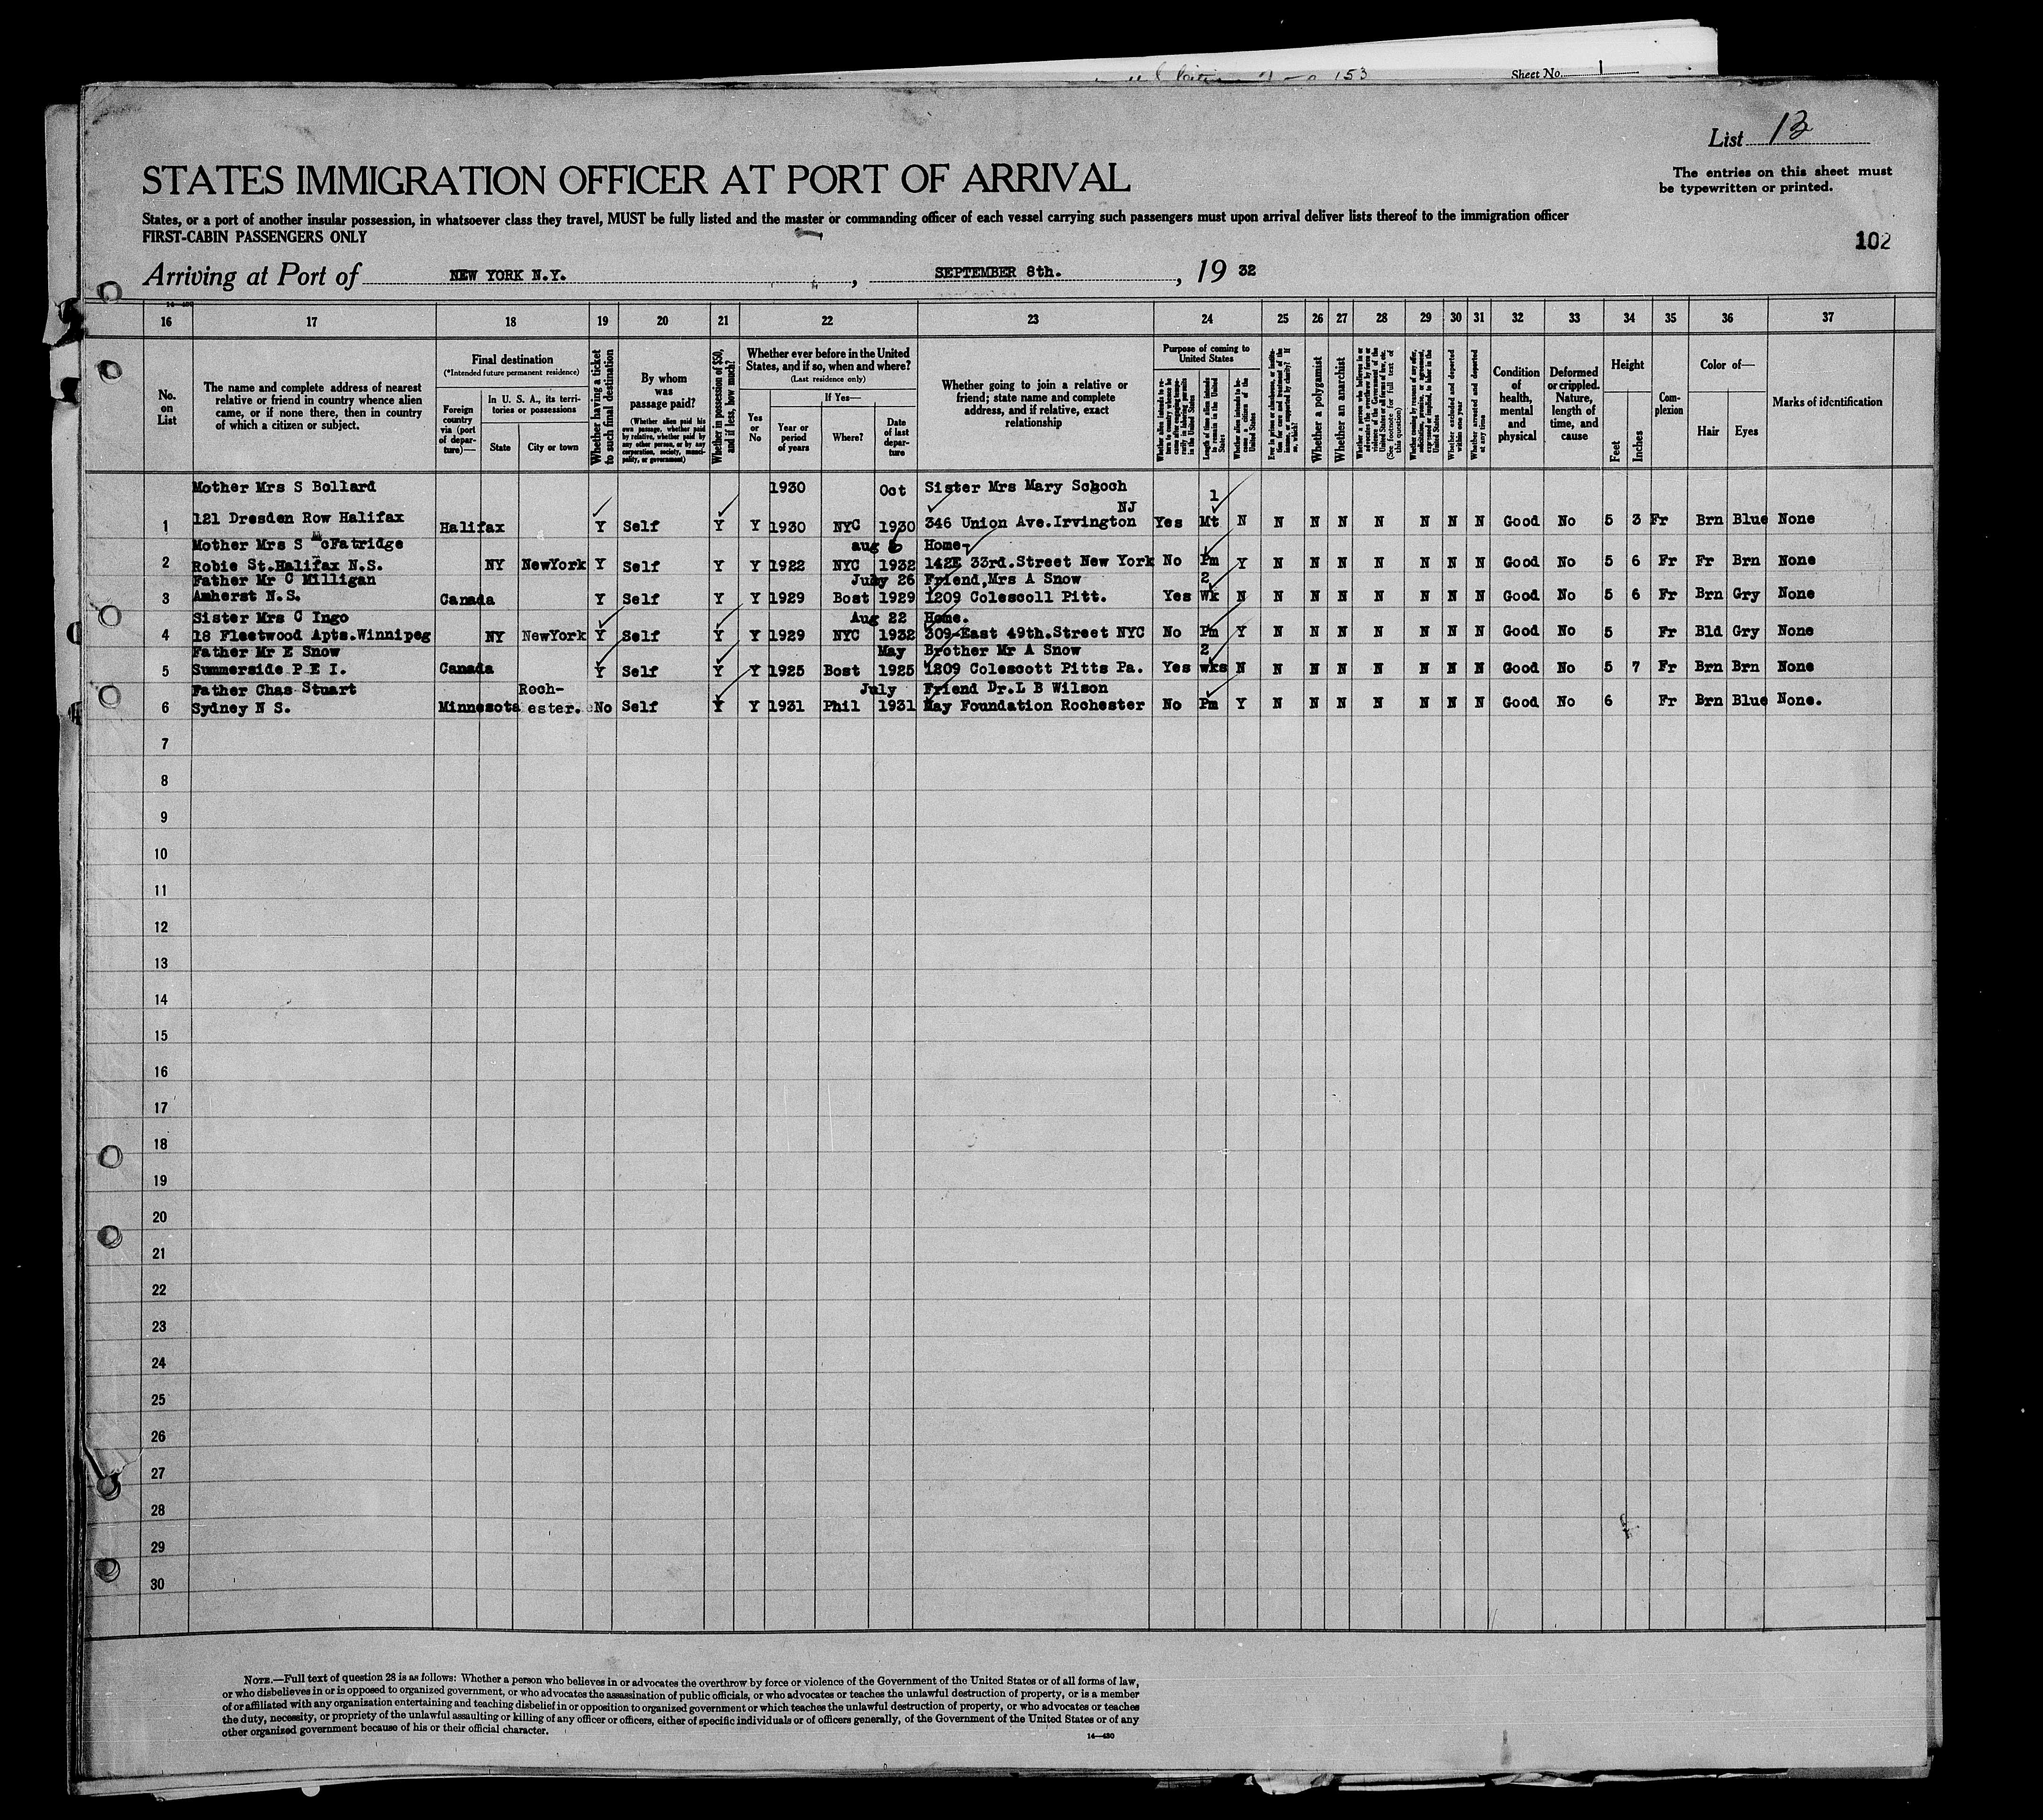 153
Sheet No. 1
List 13
STATES IMMIGRATION OFFICER AT PORT OF ARRIVAL
The entries on this sheet must
be typewritten or printed.
States, or a port of another insular possession, in whatsoever class they travel, MUST be fully listed and the master or commanding officer of each vessel carrying such passengers must upon arrival deliver lists thereof to the immigration officer
FIRST-CABIN PASSENGERS ONLY
102
Arriving at Port of NEW YORK N.Y. , SEPTEMBER 8th. , 19 32
16 17 18 19 20 21 22 23 24 25 26 27 28 29 30 31 32 33 34 35 36 37
No.
on
List
The name and complete address of nearest
relative or friend in country whence alien
came, or if none there, then in country
of which a citizen or subject.
Final destination
(*Intended future permanent residence)
Foreign
country
via (port
of depar-
ture)—
In U. S. A., its terri-
tories or possessions
State
City or town
Whether having a ticket
to such final destination
By whom
was
passage paid?
(Whether alien paid his
own passage, whether paid
by relative, whether paid by
any other person, or by any
corporation, society, munici-
pality, or government)
Whether in possession of $50,
and if less, how much?
Whether ever before in the United
States, and if so, when and where?
(Last residence only)
Yes
or
No
If Yes—
Year or
period
of years
Where?
Date
of last
depar-
ture
Whether going to join a relative or
friend; state name and complete
address, and if relative, exact
relationship
Purpose of coming to
United States
Whether alien intends to re-
turn to country whence he
came after engaging tempo-
rarily in laboring pursuits
in the United States
Length of time alien intends
to remain in the United
States
Whether alien intends to be-
come a citizen of the
United States
Ever in prison or almshouse, or institu-
tion for care and treatment of the
insane, or supported by charity? If
so, which?
Whether a polygamist
Whether an anarchist
Whether a person who believes in or
advocates the overthrow by force or
violence of the Government of the
United States or all forms of law, etc.
(See footnote for full text of
this question)
Whether coming by reason of any offer,
solicitation, promise, or agreement,
expressed or implied, to labor in the
United States
Whether excluded and deported
within one year
Whether arrested and deported
at any time
Condition
of
health,
mental
and
physical
Deformed
or crippled.
Nature,
length of
time, and
cause
Height
Feet
Inches
Com-
plexion
Color of—
Hair
Eyes
Marks of identification
Mother Mrs S Bollard 1930 Oct Sister Mrs Mary Schoch 1
NJ
1 121 Dresden Row Halifax Halifax Y Self Y Y 1930 NYC 1930 346 Union Ave.Irvington Yes Mt N N N N N N N N Good No 5 3 Fr Brn Blue None
Mother Mrs S McFatridge aug Home-
2 Robie St.Halifax N.S. NY NewYork Y Self Y Y 1922 NYC 1932 142E 33rd.Street New York No Pm Y N N N N N N N Good No 5 6 Fr Fr Brn None
Father Mr C Milligan July 26 Friend,Mrs A Snow 2
3 Amherst N.S. Canada Y Self Y Y 1929 Bost 1929 1209 Colescoll Pitt. Yes Wk N N N N N N N N Good No 5 6 Fr Brn Gry None
Sister Mrs C Ingo Aug 22 Home.
4 18 Fleetwood Apts.Winnipeg NY NewYork Y Self Y Y 1929 NYC 1932 309-East 49th.Street NYC No Pm Y N N N N N N N Good No 5 Fr Bld Gry None
Father Mr E Snow May Brother Mr A Snow 2
5 Summerside P E I. Canada Y Self Y Y 1925 Bost 1925 1209 Colescott Pitts Pa. Yes wks N N N N N N N N Good No 5 7 Fr Brn Brn None
Father Chas Stuart Roch- July Friend Dr.L B Wilson
6 Sydney N S. Minnesota ester. No Self Y Y 1931 Phil 1931 May Foundation Rochester No Pm Y N N N N N N N Good No 6 Fr Brn Blue None.
7
8
9
10
11
12
13
14
15
16
17
18
19
20
21
22
23
24
25
26
27
28
29
30
NOTE.—Full text of question 28 is as follows: Whether a person who believes in or advocates the overthrow by force or violence of the Government of the United States or of all forms of law,
or who disbelieves in or is opposed to organized government, or who advocates the assassination of public officials, or who advocates or teaches the unlawful destruction of property, or is a member
of or affiliated with any organization entertaining and teaching disbelief in or opposition to organized government or which teaches the unlawful destruction of property, or who advocates or teaches
the duty, necessity, or propriety of the unlawful assaulting or killing of any officer or officers, either of specific individuals or of officers generally, of the Government of the United States or of any
other organized government because of his or their official character.
14—430